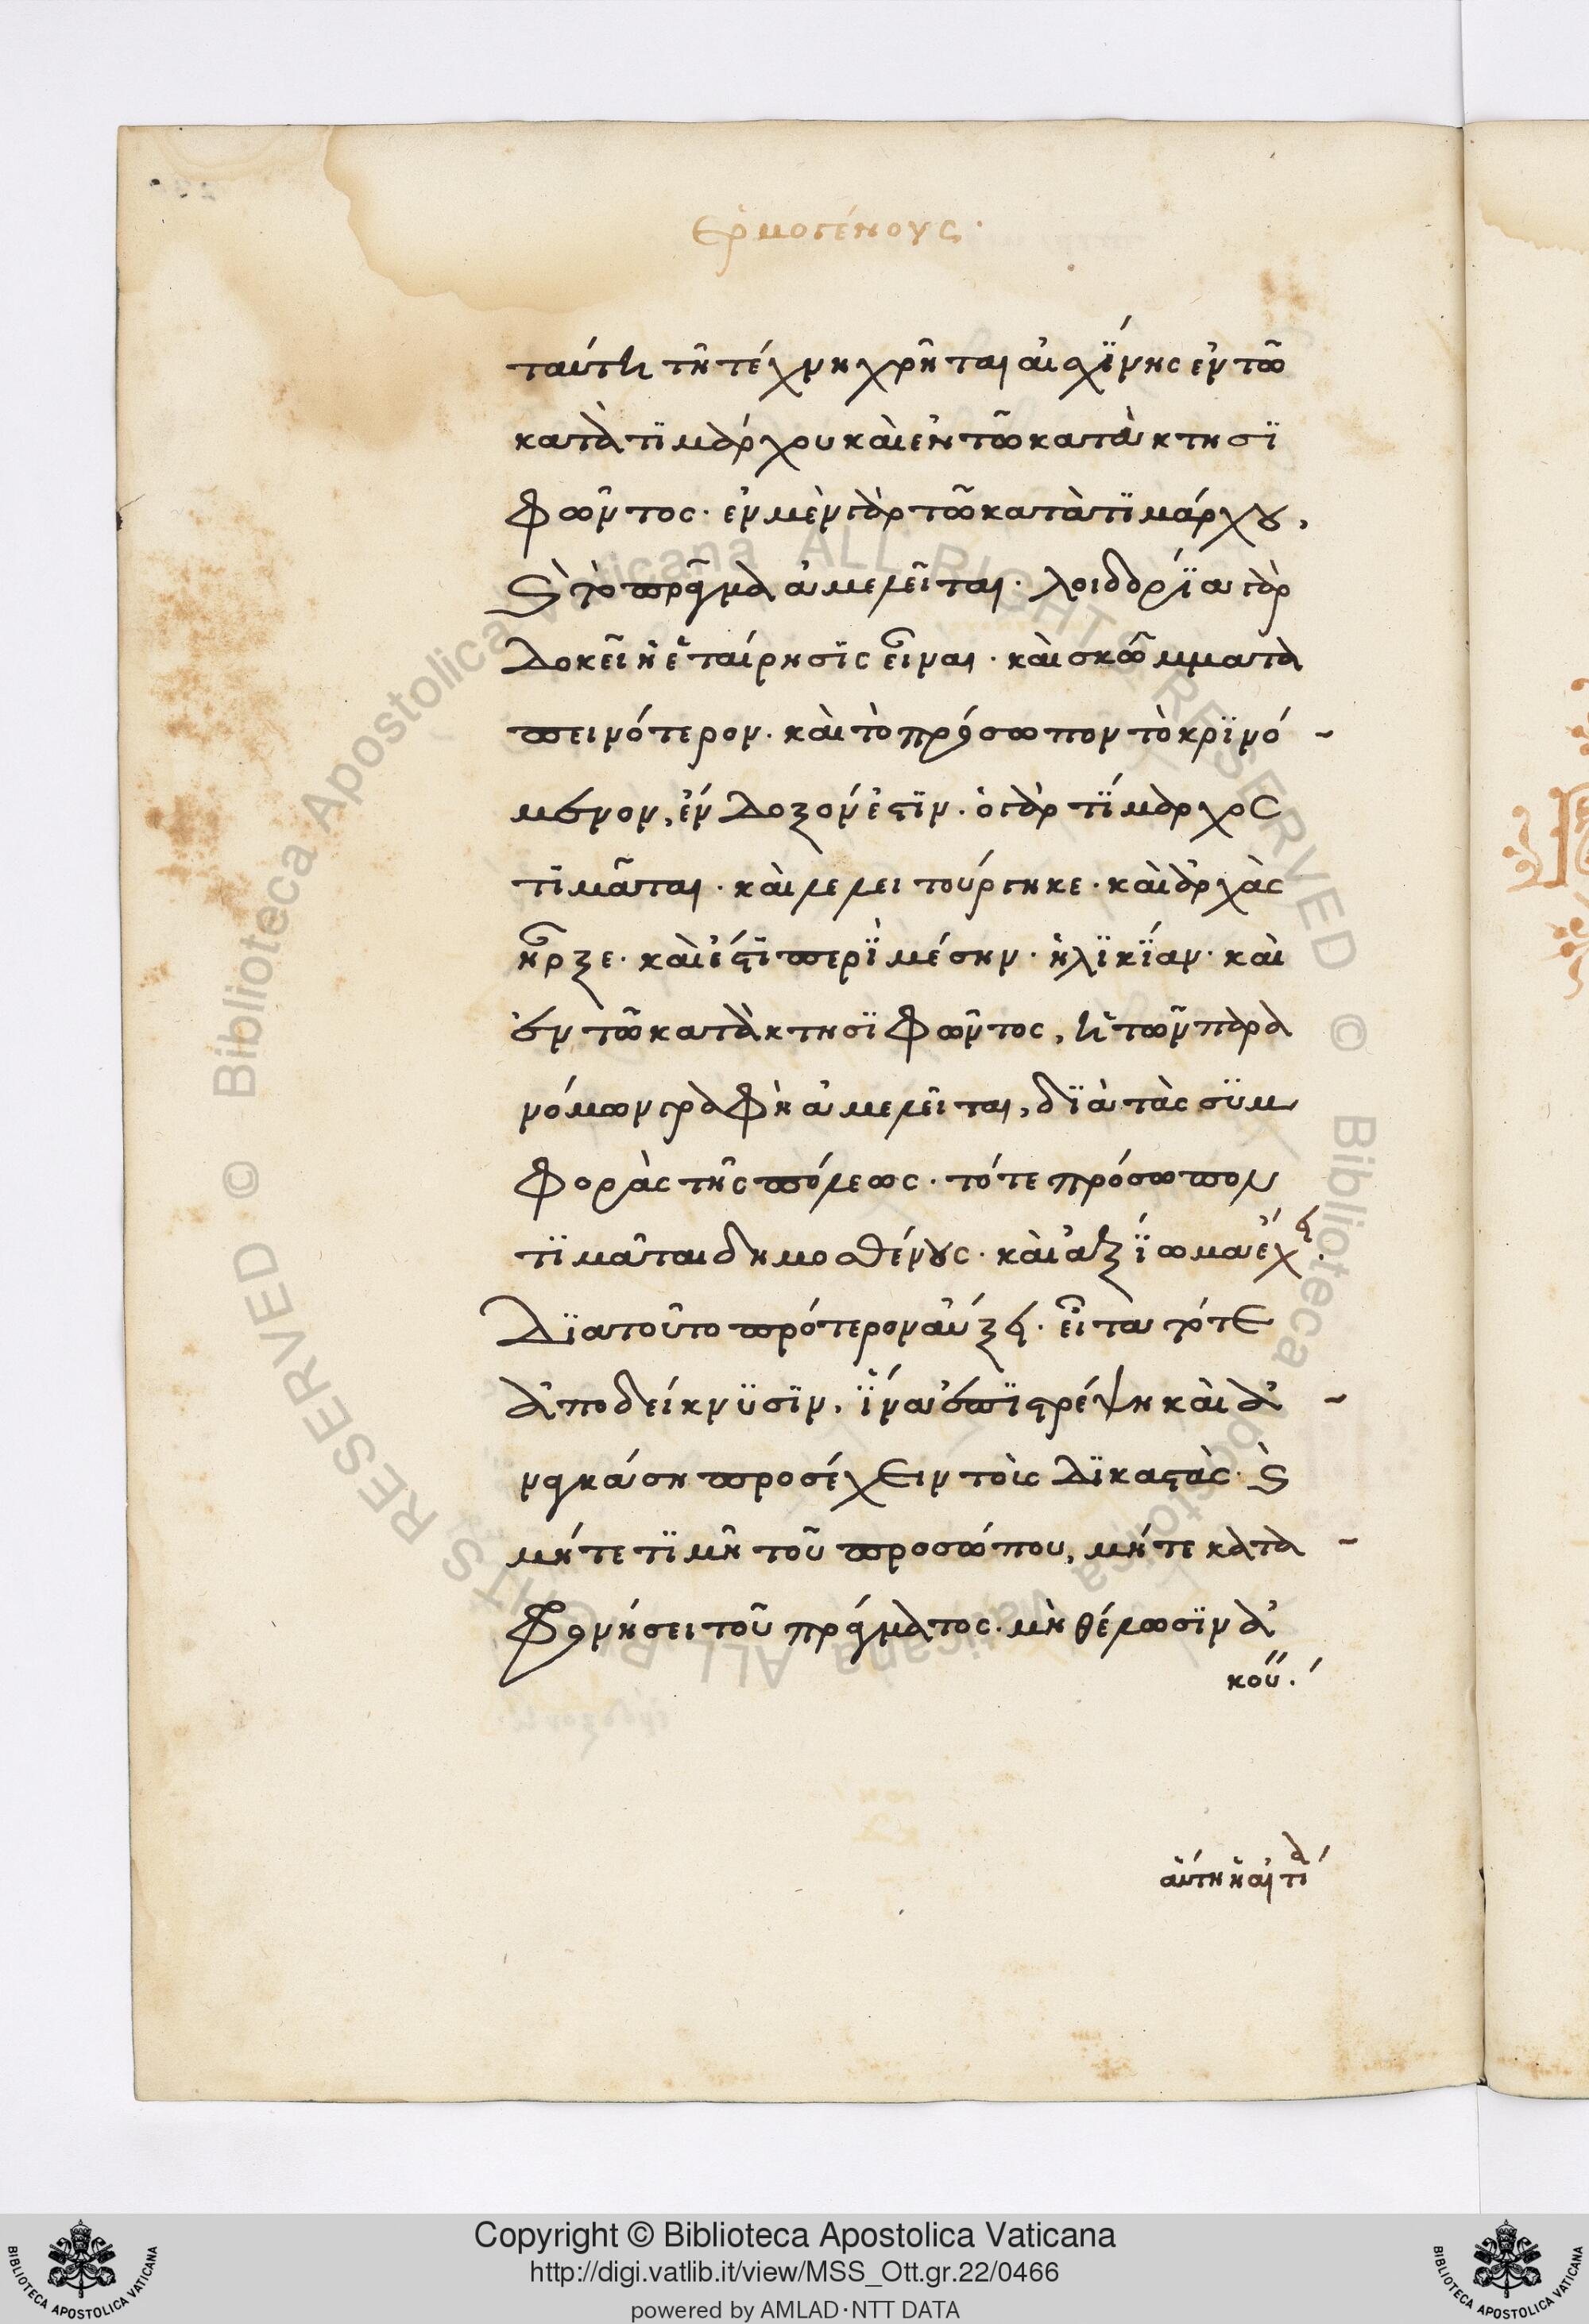 Ἑρμογένους.
ταύτη τῆ τέχνη χρῆται αἰσχίνης ἐν τῶ
κατὰ τϊμάρχου καὶ ἐν τῶ κατὰ κτησϊ
φῶντος· ἐν μὲν γὰρ τῶ κατὰ τϊμάρχου,
καὶ τὸ πρᾶγμα ἀμελεῖται· λοιδορΐα γὰρ
δοκεῖ ἡ ἑταίρησϊς εἶναι· καὶ σκῶμματα
πεινότερον· καὶ τὸ πρόσωπον τὸ κρϊνό-
μενον, ἔνδοξόν ἐστϊν· ὁ γὰρ τΐμαρχος
τϊμᾶται· καὶ λελειτούργηκε· καὶ ἀρχὰς
ἦρξε· καὶ ἐστΐ περὶ μέσην· ἡλϊκΐαν· καὶ
ἐν τῶ κατὰ κτησϊφῶντος, ἡ τῶν παρα
νόμων γραφὴ ἀμελεῖται, δϊὰ τὰς σϋμ
φορὰς τῆς πόλεως· τότε πρόσωπον
τϊμᾶται δημοσθένους· καὶ ἀξΐωμα ἔχει·
δϊατοῦτο πρότερον αὔξει· εἶτα τότε
ἀποδείκνϋσϊν, ἵνα ἐπϊστρέψη καὶ ἀ-
ναγκάση προσέχειν τοῖς δϊκαστὰς· καὶ
μήτε τϊμῆ τοῦ προσώπου, μήτε κατα-
φρονήσει τοῦ πράγματος· μὴ θέλωσϊν ἀ
κού.
αὕτη ἡ αἰτία